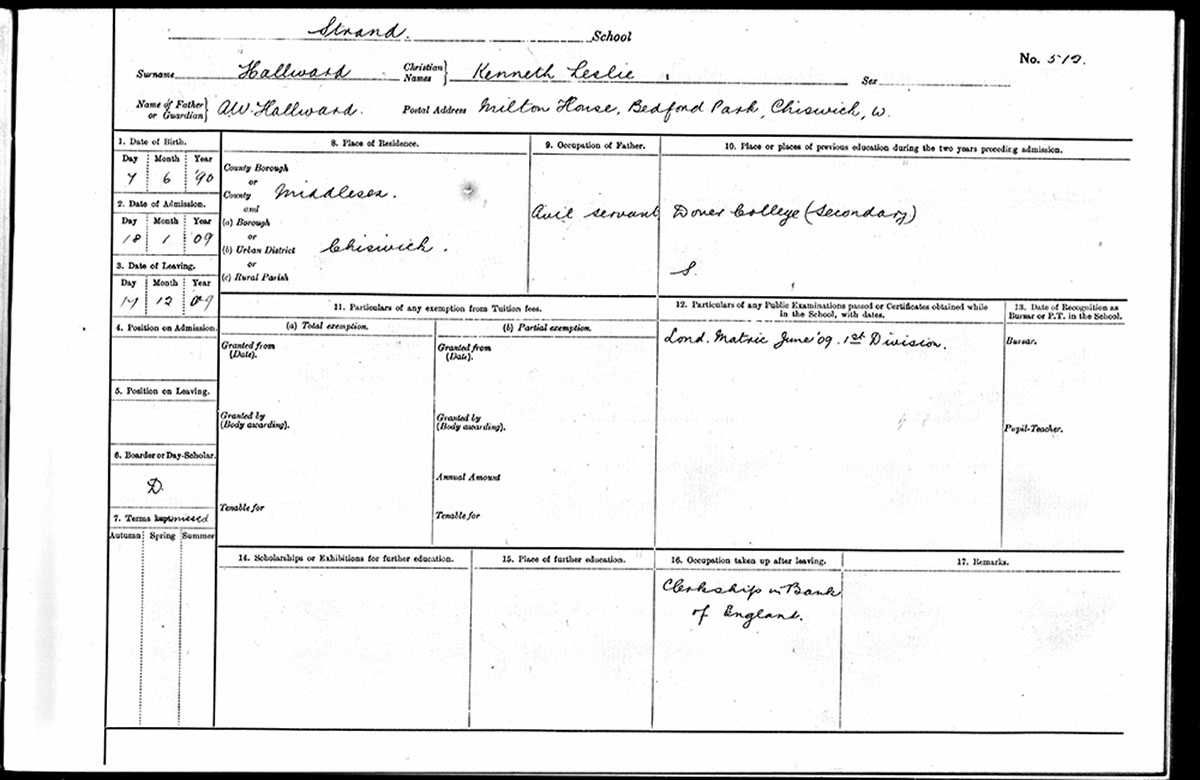 Strand. School
No. 512.
Surname Hallward Christian Names Kenneth Leslie Sex
Name of Father or Guardian A.W. Hallward. Postal Address Milton House, Bedford Park, Chiswick, W.
1. Date of Birth.
Day Month Year
7 6 '90
2. Date of Admission.
Day Month Year
18 1 '09
3. Date of Leaving.
Day Month Year
17 12 '09
4. Position on Admission.
5. Position on Leaving.
6. Boarder or Day-Scholar.
D.
7. Terms missed
Autumn Spring Summer
8. Place of Residence.
County Borough
or
County Middlesex.
and
(a) Borough
or
(b) Urban District Chiswick.
or
(c) Rural Parish
9. Occupation of Father.
Civil servant
10. Place or places of previous education during the two years preceding admission.
Dover College (Secondary)
S.
11. Particulars of any exemption from Tuition fees.
(a) Total exemption.
Granted from
(Date).
Granted by
(Body awarding).
Tenable for
(b) Partial exemption.
Granted from
(Date).
Granted by
(Body awarding).
Annual Amount
Tenable for
12. Particulars of any Public Examinations passed or Certificates obtained while
in the School, with dates.
Lond. Matric June '09. 1st Division.
13. Date of Recognition as
Bursar or P.T. in the School.
Bursar.
Pupil-Teacher.
14. Scholarships or Exhibitions for further education.
15. Place of further education.
16. Occupation taken up after leaving.
Clerkship in Bank
of England.
17. Remarks.